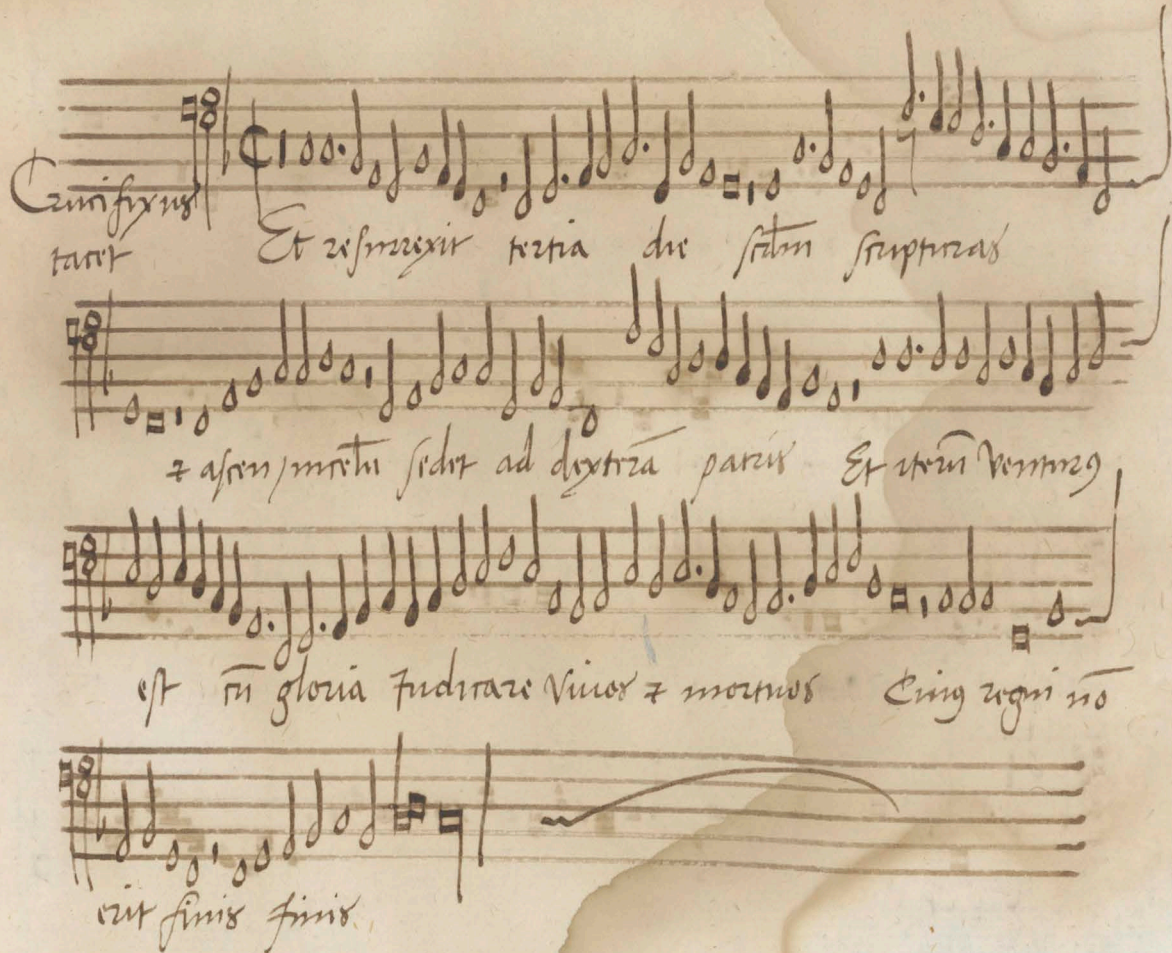 Crucifixus
tacet Et resurrexit tertia die scdm scripturas
⁊ ascen in celū sedet ad dexterā patris Et iterū Venturꝯ
est cū gloria Iudicare Viuos ⁊ mortuos Cuiuꝯ regni nō
erit finis finis